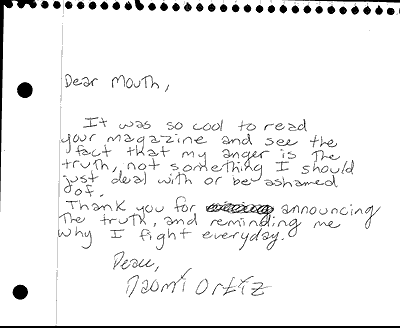 Dear Mouth,
It was so cool to read
your magazine and see the
fact that my anger is the
truth, not something I should
just deal with or be ashamed
of.
Thank you for announcing
the truth, and reminding me
why I fight everyday.
Peace,
Naomi Ortiz